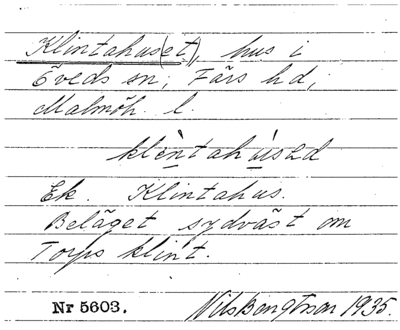 Klintahus(et), hus i
Öveds sn, Färs hd,
Malmöh. l.
klèntahùsəd
Ek. Klintahus.
Beläget sydväst om
Torps klint.
Nr 5603. Nils Bengtsson 1935.